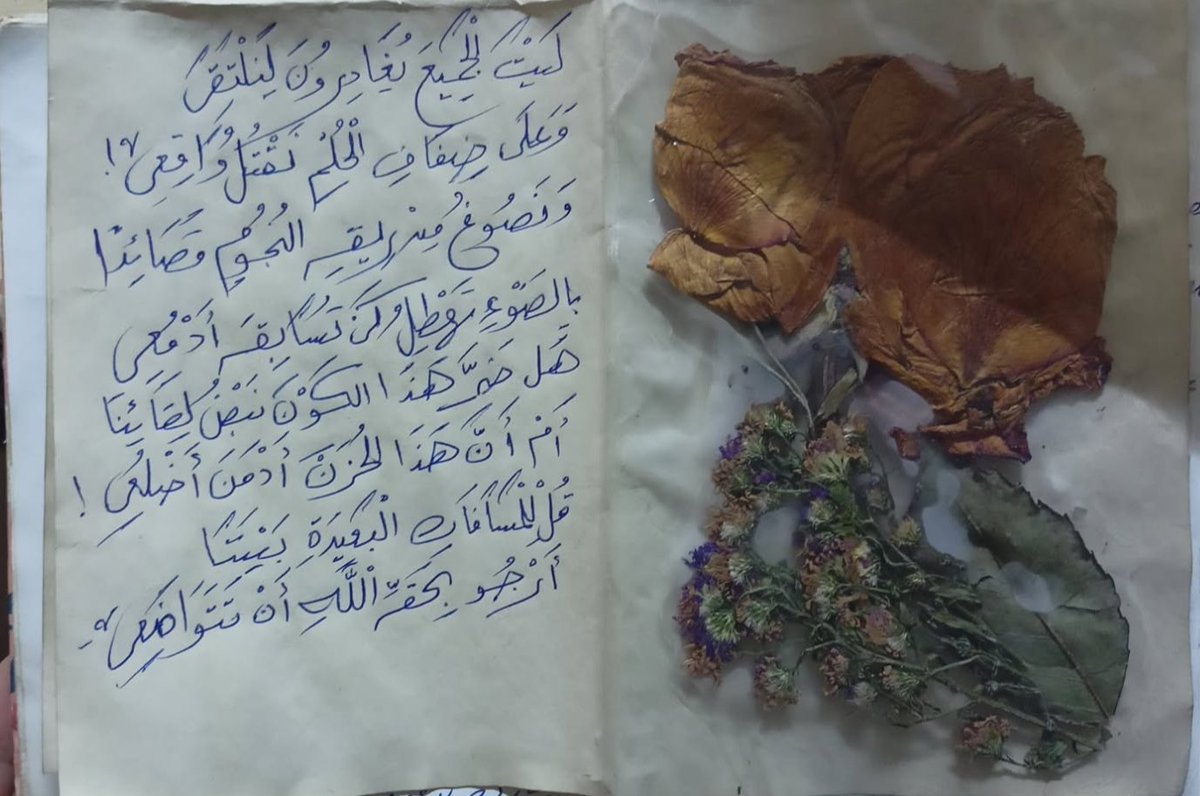 لَيْتَ الْجَمِيعَ يُغَادِرُونَ لِنَلْتَقِي
وَعَلَى ضِفَافِ الْحُلْمِ نَقْتُلُ وَاقِعِي !
وَنَصُوغُ مِنْ رِيقِ النُّجُومِ قَصَائِدًا
بِالضَّوْءِ تَهْطِلُ كَيْ تُسَابِقَ أَدْمُعِي
هَلْ ضَرَّ هَذَا الْكَوْنَ نَبْضُ لِقَائِنَا
أَمْ أَنَّ هَذَا الْحُزْنَ أَدْمَنَ أَضْلُعِي !
قُلْ لِلْمَسَافَاتِ الْبَعِيدَةِ بَيْنَنَا
أَرْجُو بِحَقِّ اللَّهِ أَنْ تَتَوَاضَعِي